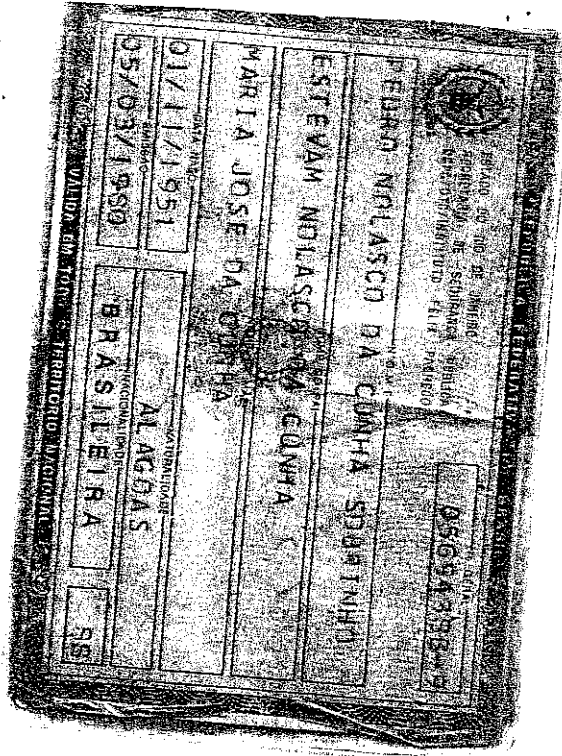 REPÚBLICA FEDERATIVA DO BRASIL
ESTADO DO RIO DE JANEIRO
SECRETARIA DE SEGURANÇA PÚBLICA
INSTITUTO FELIX PACHECO
NOME
PEDRO NOLASCO DA CUNHA SOBRINHO
ESTEVAM NOLASCO DA CUNHA
MARIA JOSE DA CUNHA
DATA NASC.
01/11/1951
NATURALIDADE
ALAGOAS
05/03/1980
NACIONALIDADE
BRASILEIRA
VALIDA EM TODO O TERRITORIO NACIONAL